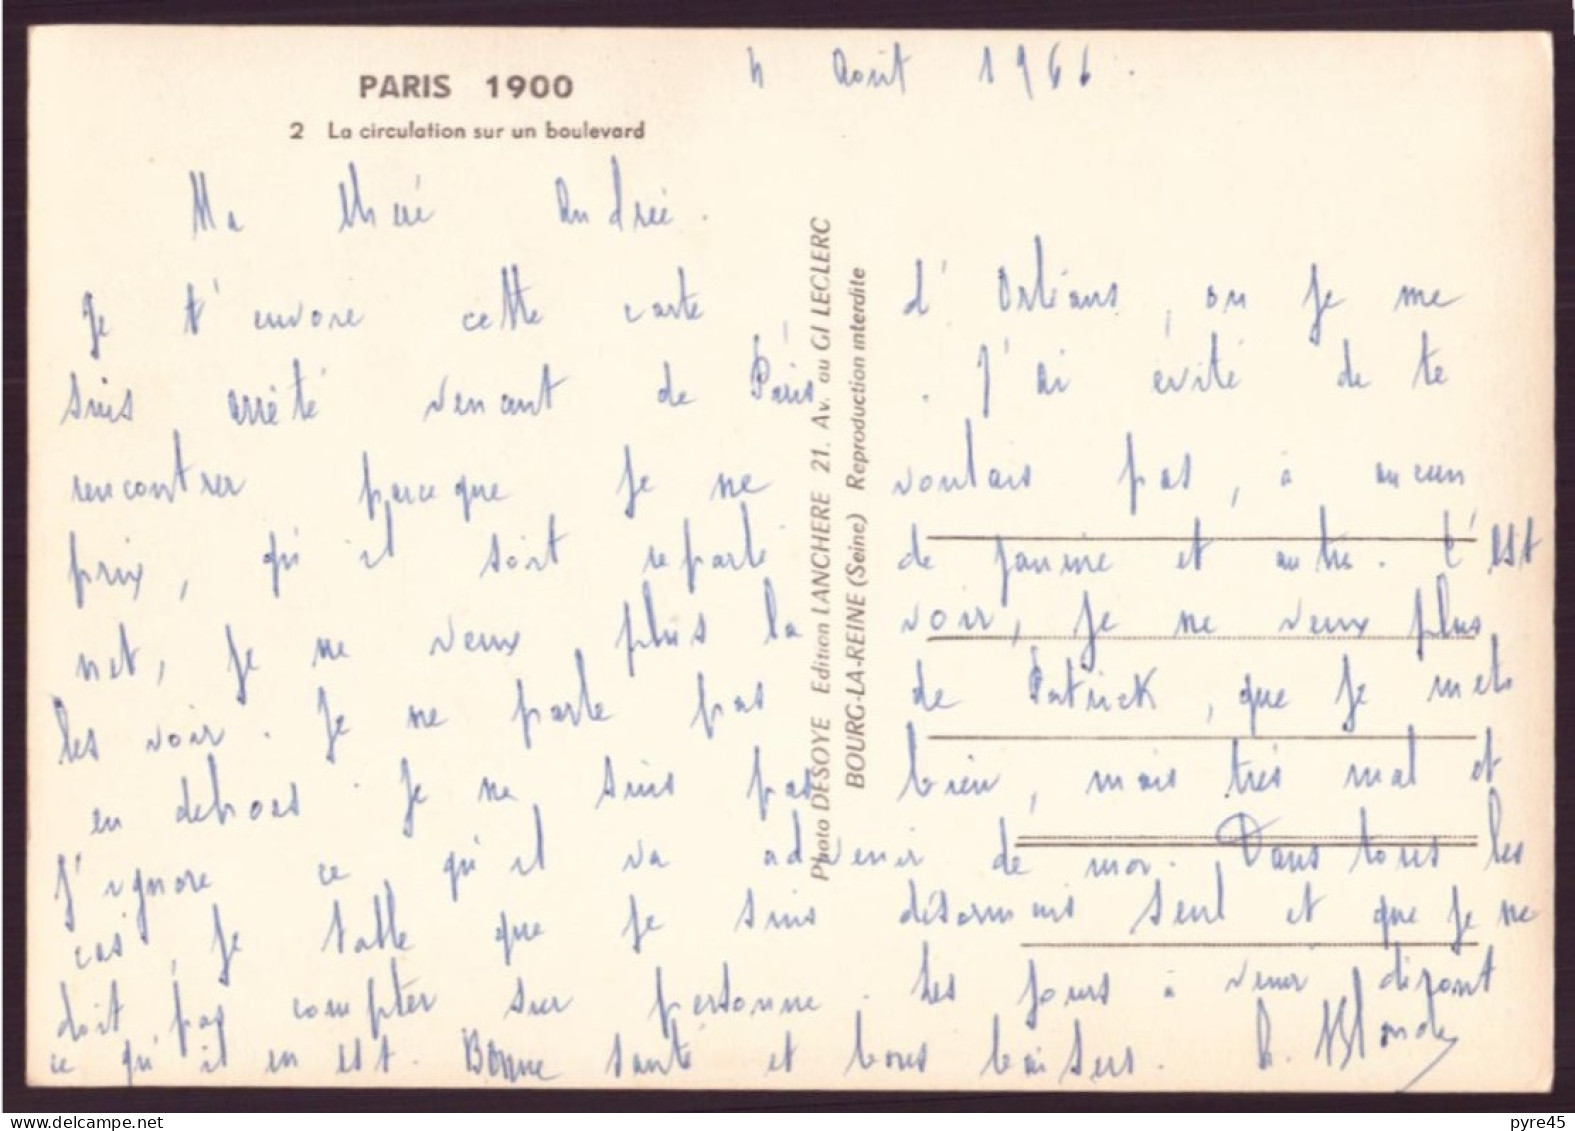 PARIS 1900
2 La circulation sur un boulevard
4 Août 1966.
Ma chère Andrée.
Je t'envoie cette carte d'Orléans, ou je me
suis arrêté venant de Paris. J'ai évité de te
rencontrer parceque je ne voulais pas, à aucun
prix, qu'il soit reparlé de Janine et autre. C'est
net, je ne veux plus la voir, je ne veux plus
les voir. Je ne parle pas de Patrick, que je mets
en dehors. Je ne suis pas bien, mais très mal et
j'ignore ce qu'il va advenir de moi. Dans tous les
cas, je table que je suis désormais seul et que je ne
doit pas compter sur personne. Les jours à venir diront
ce qu'il en est. Bonne santé et bons baisers.
Photo DESOYE Edition LANCHERE 21. Av. du Gl LECLERC
BOURG-LA-REINE (Seine) Reproduction interdite
pyre45